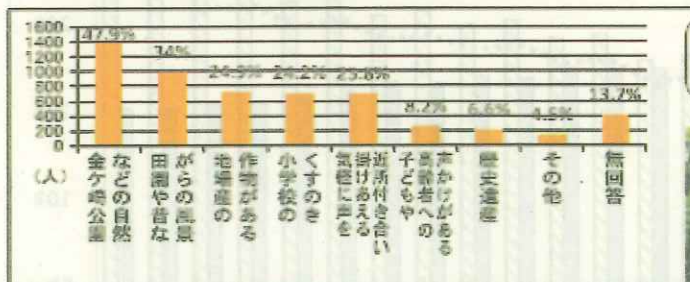 1600
1400
1200
1000
800
600
400
200
0
(人)
47.9%
34%
24.9%
24.2%
23.8%
8.2%
6.6%
4.5%
13.7%
金ケ崎公園
などの自然
田園や昔な
がらの風景
地場産の
作物がある
小学校の
くすのき
気軽に声を
掛けあえる
近所付き合い
子どもや
高齢者への
声かけがある
歴史遺産
その他
無回答